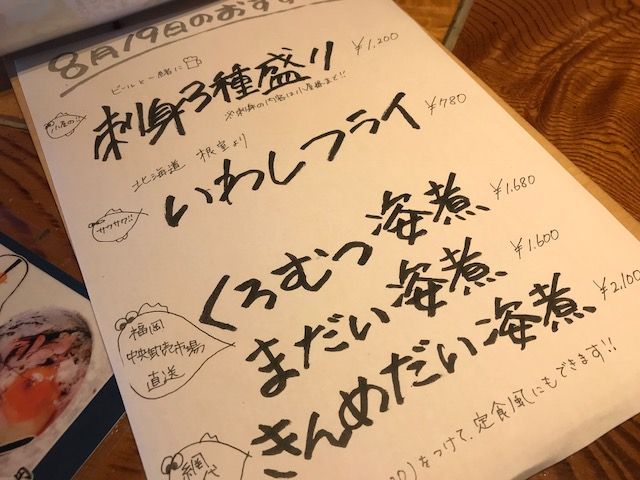 8月19日のおす
ビールと一緒に
小屋の!!
刺身3種盛り ¥1,200
※刺身の内容は小屋番まで!!
北海道 根室より
サクサク!!
いわしフライ ¥780
くろむつ姿煮 ¥1,680
福岡
中央卸売市場
直送
まだい姿煮 ¥1,600
きんめだい姿煮 ¥2,100
網代
0)をつけて、定食風にもできます!!
円